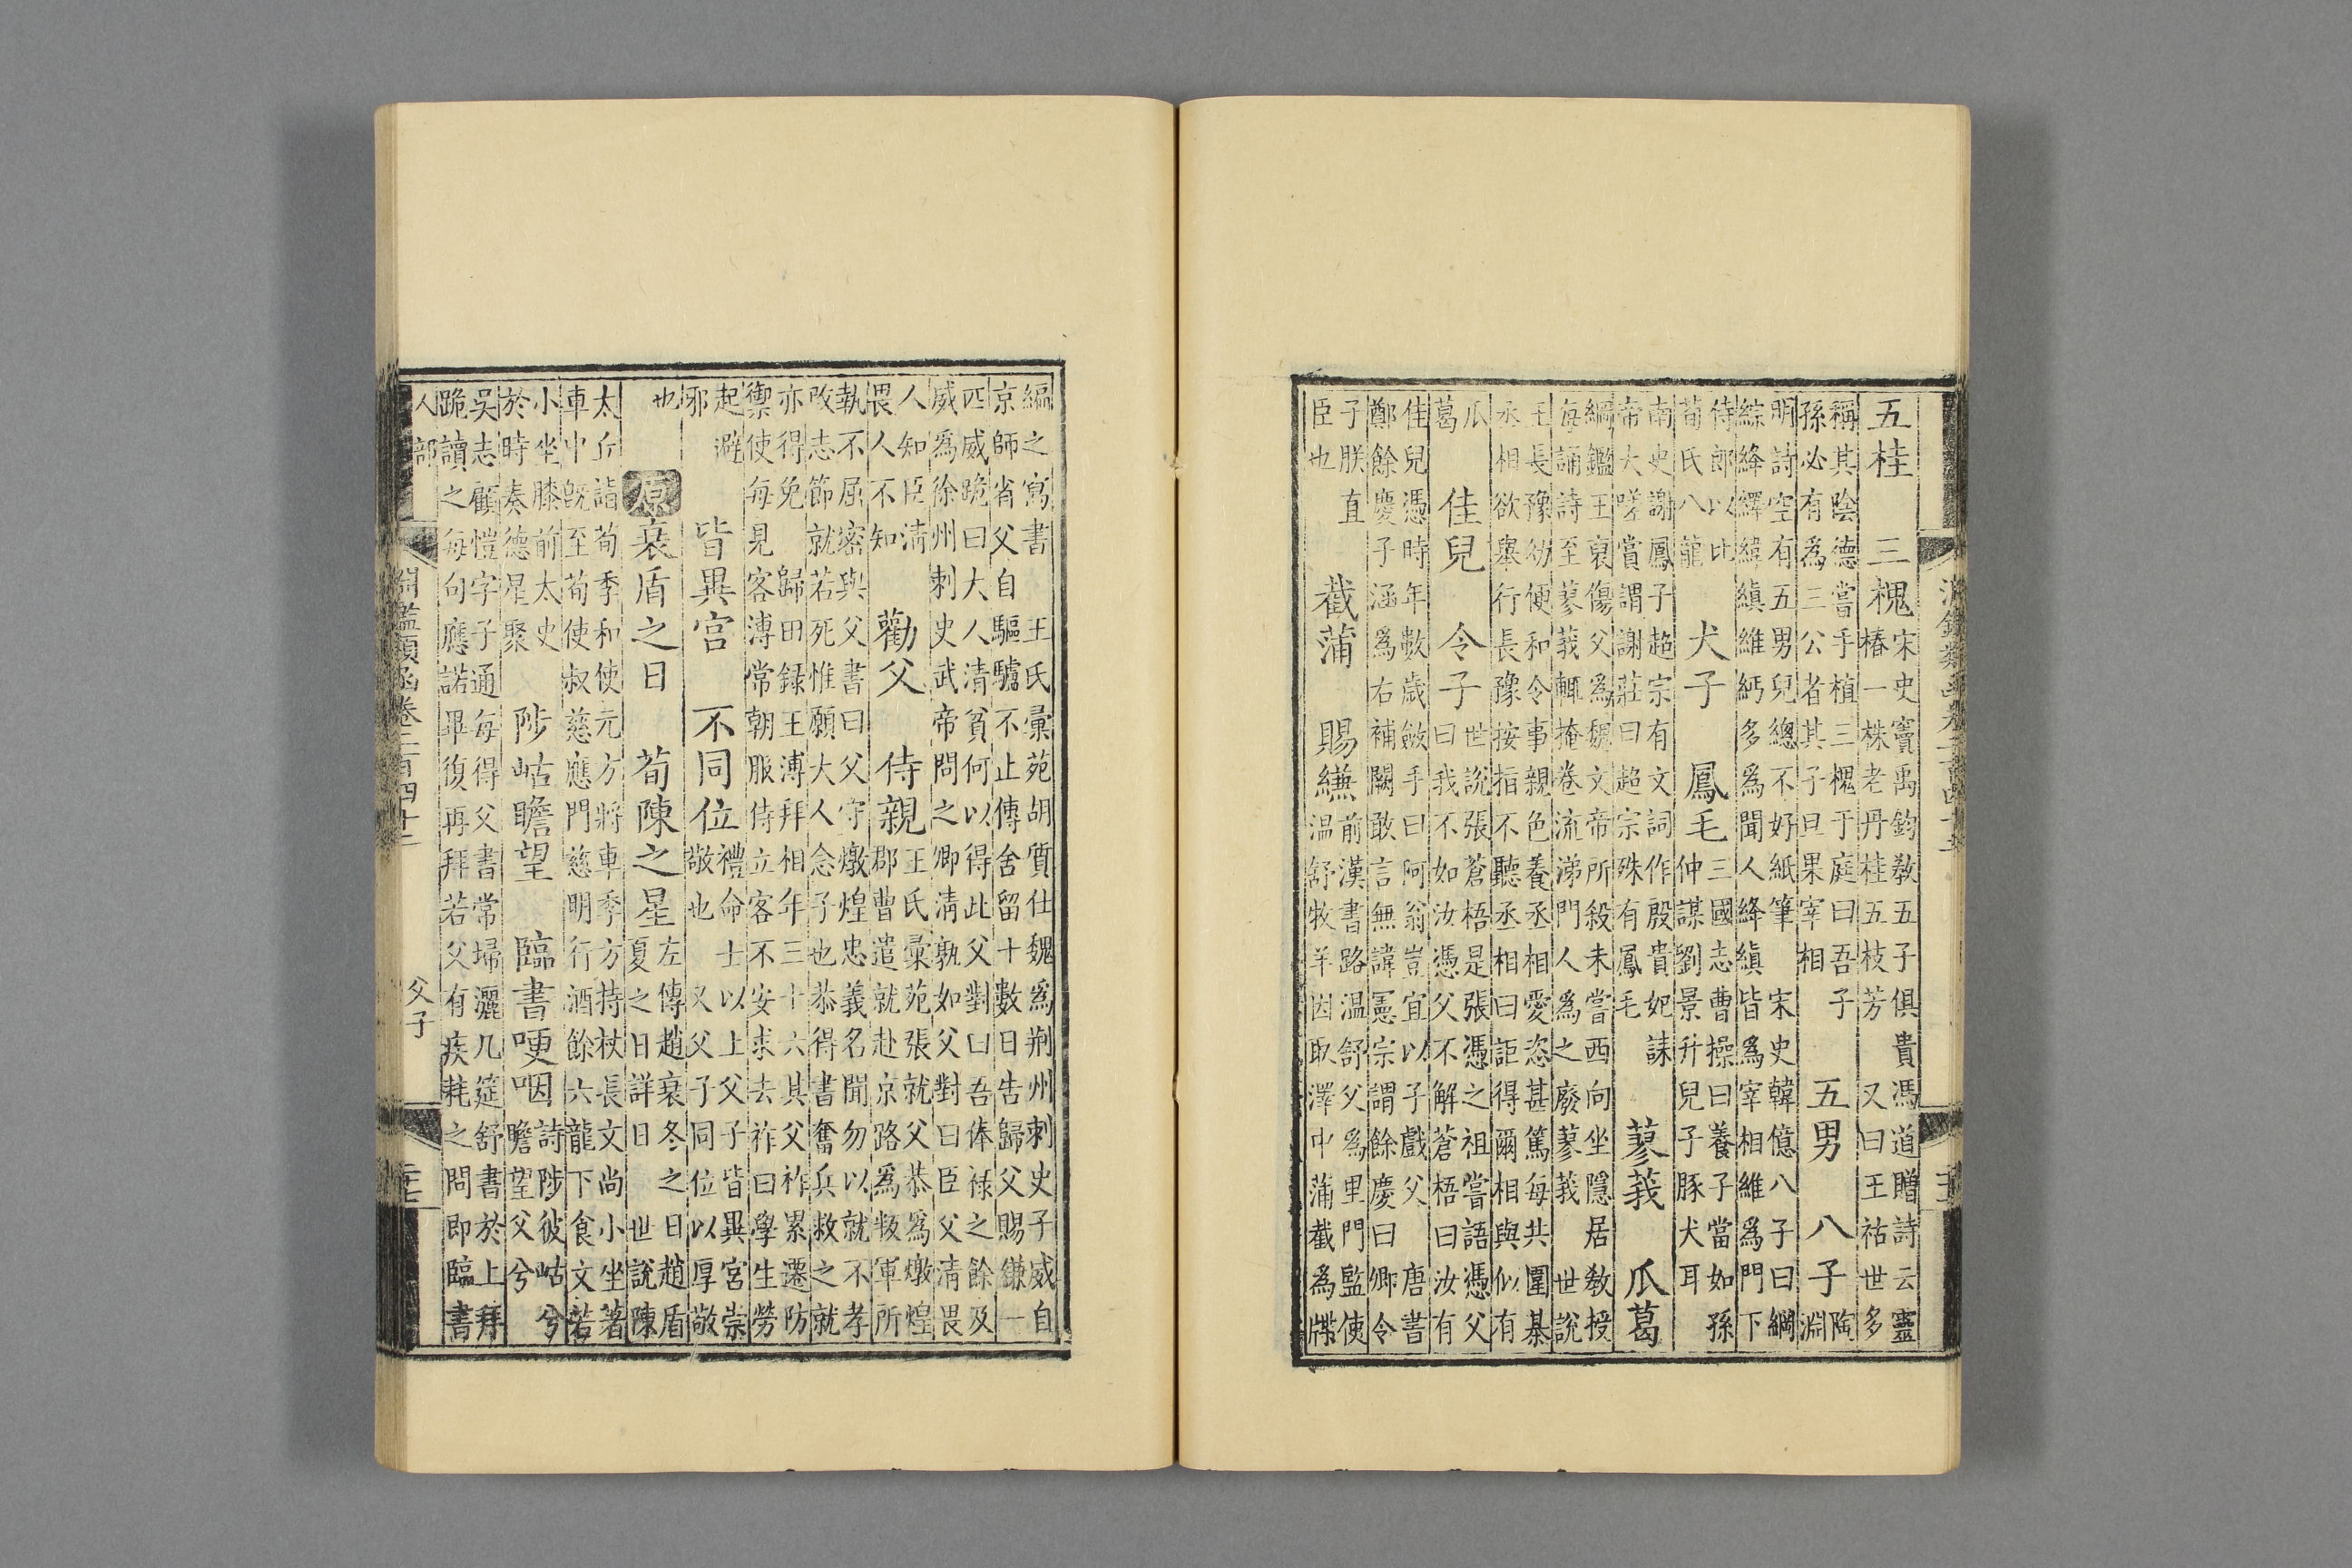 五桂　三槐
宋史竇禹鈞教五子俱貴馮道贈詩云靈
椿一株老丹桂五枝芳　又曰王祐世多
稱其陰德嘗手植三槐于庭曰吾子
孫必有為三公者其子旦果宰相
五男　八子
陶
淵
明詩空有五男兒總不好紙筆　宋史韓億八子曰綱
綜絳繹緯縝維緬多為聞人絳縝皆為宰相維為門下
侍郎以比
荀氏八龍
犬子　鳳毛
三國志曹操曰養子當如孫
仲謀劉景升兒子豚犬耳
南史謝鳳子超宗有文詞作殷貴妃誄
帝大嗟賞謂謝莊曰超宗殊有鳳毛
蓼莪　瓜葛
綱鑑王裒傷父為魏文帝所殺未嘗西向坐隱居教授
每誦詩至蓼莪輒掩卷流涕門人為之廢蓼莪　世說
王長豫幼便和令事親色養丞相愛恣甚篤每共圍棊
丞相欲舉行長豫按指不聽丞相曰詎得爾相與似有
瓜
葛
佳兒　令子
世說張蒼梧是張憑之祖嘗語憑父
曰我不如汝憑父不解蒼梧曰汝有
佳兒憑時年數歲斂手曰阿翁豈宜以子戲父　唐書
鄭餘慶子涵為右補闕敢言無諱憲宗謂餘慶曰卿令
子朕直
臣也
截蒲　賜縑
前漢書路温舒父為里門監使
温舒牧羊因取澤中蒲截為牒
編之寫書　王氏彙苑胡質仕魏為荊州刺史子威自
京師省父自驅驢不止傳舍留十數日告歸父賜縑一
匹威跪曰大人清貧何以得此父對曰吾俸祿之餘及
威為徐州刺史武帝問之卿清孰如父對曰臣父清畏
人知臣清
畏人不知
勸父　侍親
王氏彙苑張就父恭為燉煌
郡曹遣就赴京路為叛軍所
執不屈密與父書曰父守燉煌忠義名聞勿以就不孝
改志節就若死惟願大人念子也恭得書奮兵救之就
亦得免　歸田録王溥拜相年三十六其父祚累遷防
禦使每見客溥常朝服侍立客不安求去祚曰學生勞
起避
邪
皆異宮　不同位
禮命士以上父子皆異宮崇
敬也　又父子同位以厚敬
也
原
衰盾之日　荀陳之星
左傳趙衰冬之日趙盾
夏之日詳日　世說陳
太丘詣荀季和使元方將車季方持杖長文尚小坐著
車中旣至荀使叔慈應門慈明行酒餘六龍下食文若
小坐膝前太史
於時奏德星聚
陟岵瞻望　臨書哽咽
詩陟彼岵兮
瞻望父兮
吳志顧愷字子通每得父書常埽灑几筵舒書於上拜
跪讀之每句應諾畢復再拜若父有疾耗之問即臨書
人部
淵鑑類函卷二百四十二
父子